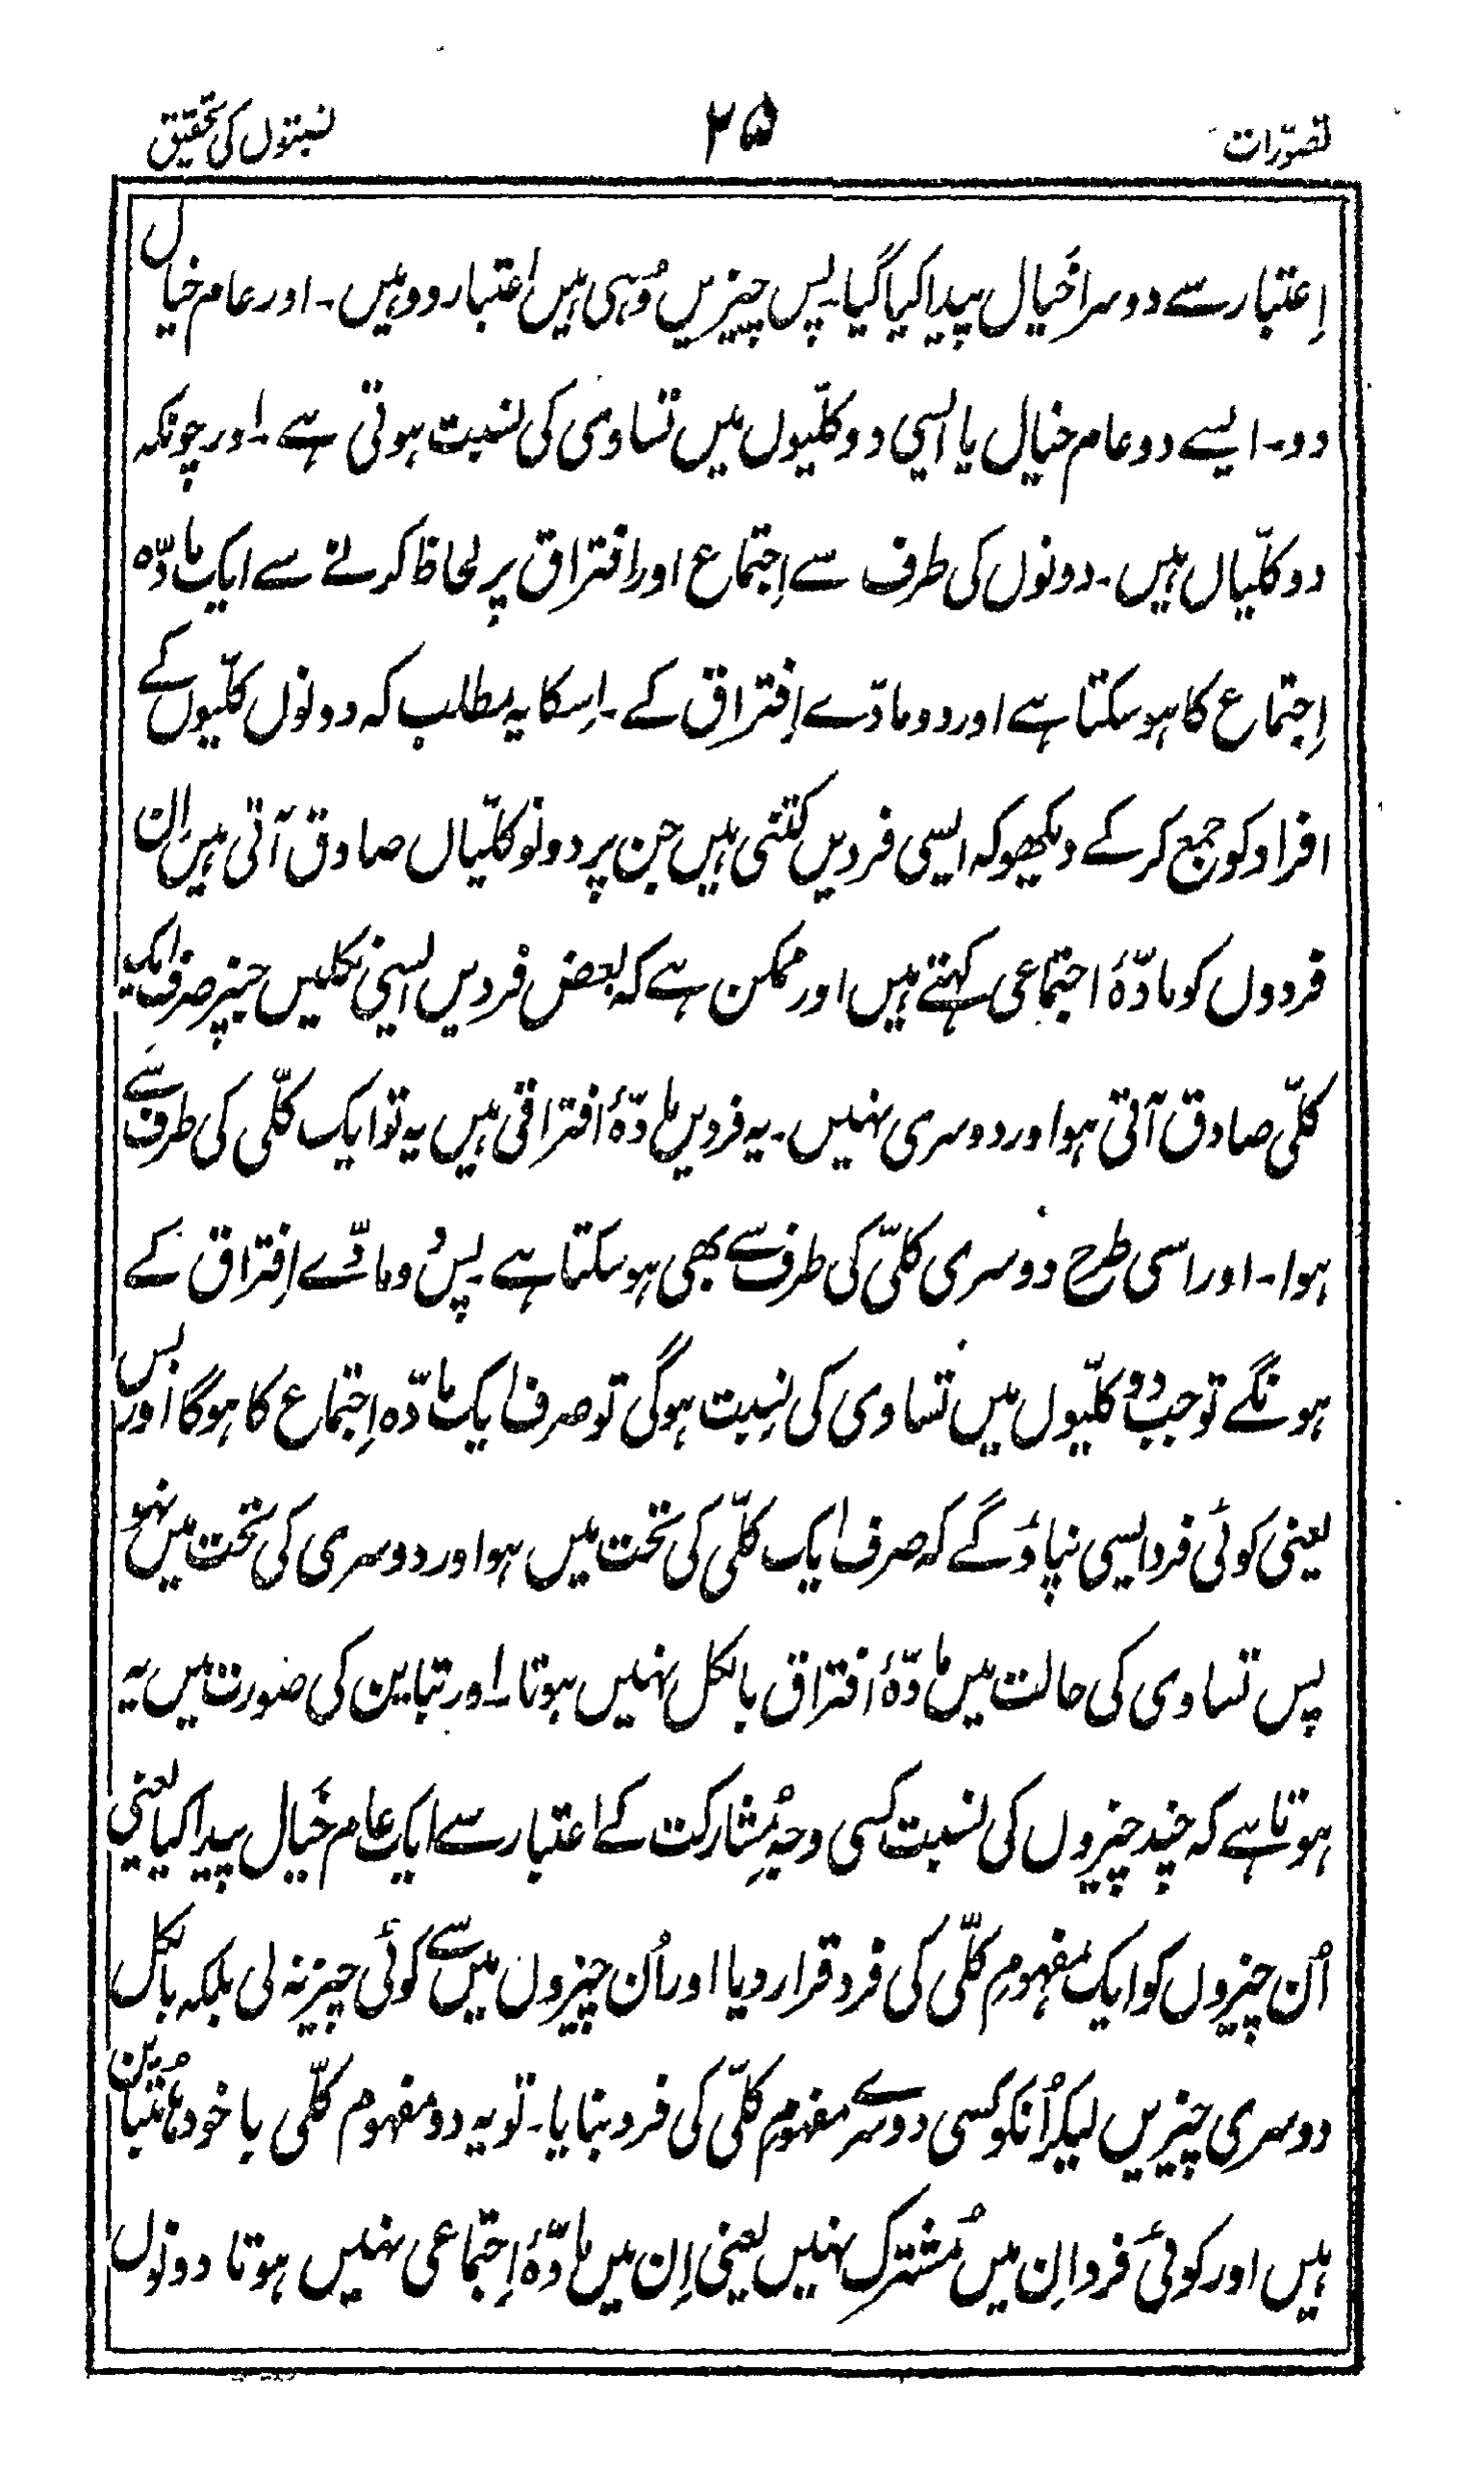 تصوّرات ۲۵ نسبتوں کی تحقیق
اِعتبار سے دوسرا خَیال پیدا کیا گیا۔ پس چیزیں وُہی ہیں اعتبار دو ہیں۔ اور عام خیال
دو۔ ایسے دو عام خیال یا ایسی دو کلّیوں میں تساوی کی نسبت ہوتی ہے۔ اور چونکہ
دو کلّیاں ہیں۔ دونوں کی طرف سے اِجتماع اور افتراق پر لحاظ کرنے سے ایک مادّہ
اِجتماع کا ہو سکتا ہے اور دو مادّے اِفتراق کے۔ اِسکا یہ مطلب کہ دونوں کلّیوں کے
افراد کو جمع کر کے دیکھو کہ ایسی فردیں کتنی ہیں جن پر دونو کلّیاں صادق آتی ہیں اِن
فردوں کو مادّۂ اجتماعی کہتے ہیں اور ممکن ہے کہ بعض فردیں ایسی نکلیں جنپر صرف ایک
کلّی صادق آتی ہو اور دوسری نہیں۔ یہ فردیں مادّۂ افتراقی ہیں یہ تو ایک کلّی کی طرف سے
ہوا۔ اور اسی طرح دوسری کلّی کی طرف سے بھی ہو سکتا ہے۔ پس دو مادّے اِفتراق کے
ہونگے تو جب دو کلّیوں میں تساوی کی نِسبت ہوگی تو صرف ایک مادّہ اِجتماع کا ہوگا اور بس
یعنی کوئی فرد ایسی نپاؤ گے کہ صرف ایک کلّی کی تحت میں ہو اور دوسری کی تحت میں نہو
پس تساوی کی حالت میں مادّۂ افتراق بالکل نہیں ہوتا۔ اور تباین کی صورت میں یہ
ہوتا ہے کہ چند چیزوں کی نسبت کسی وجہِ مُشارکت کے اعتبار سے ایک عام خَیال پیدا کیا یعنی
اُن چیزوں کو ایک مفہومِ کلّی کی فرد قرار دیا اور اُن چیزوں میں سے کوئی چیز نہ لی بلکہ بالکل
دوسری چیزیں لیکر اُنکو کسی دوسرے مفہومِ کلّی کی فرد بنایا۔ تو یہ دو مفہوم کلّی با خودہا مُتباین
ہیں اور کوئی فرد اِن میں مُشترک نہیں یعنی اِن میں مادّۂ اِجتماعی نہیں ہوتا دونوں